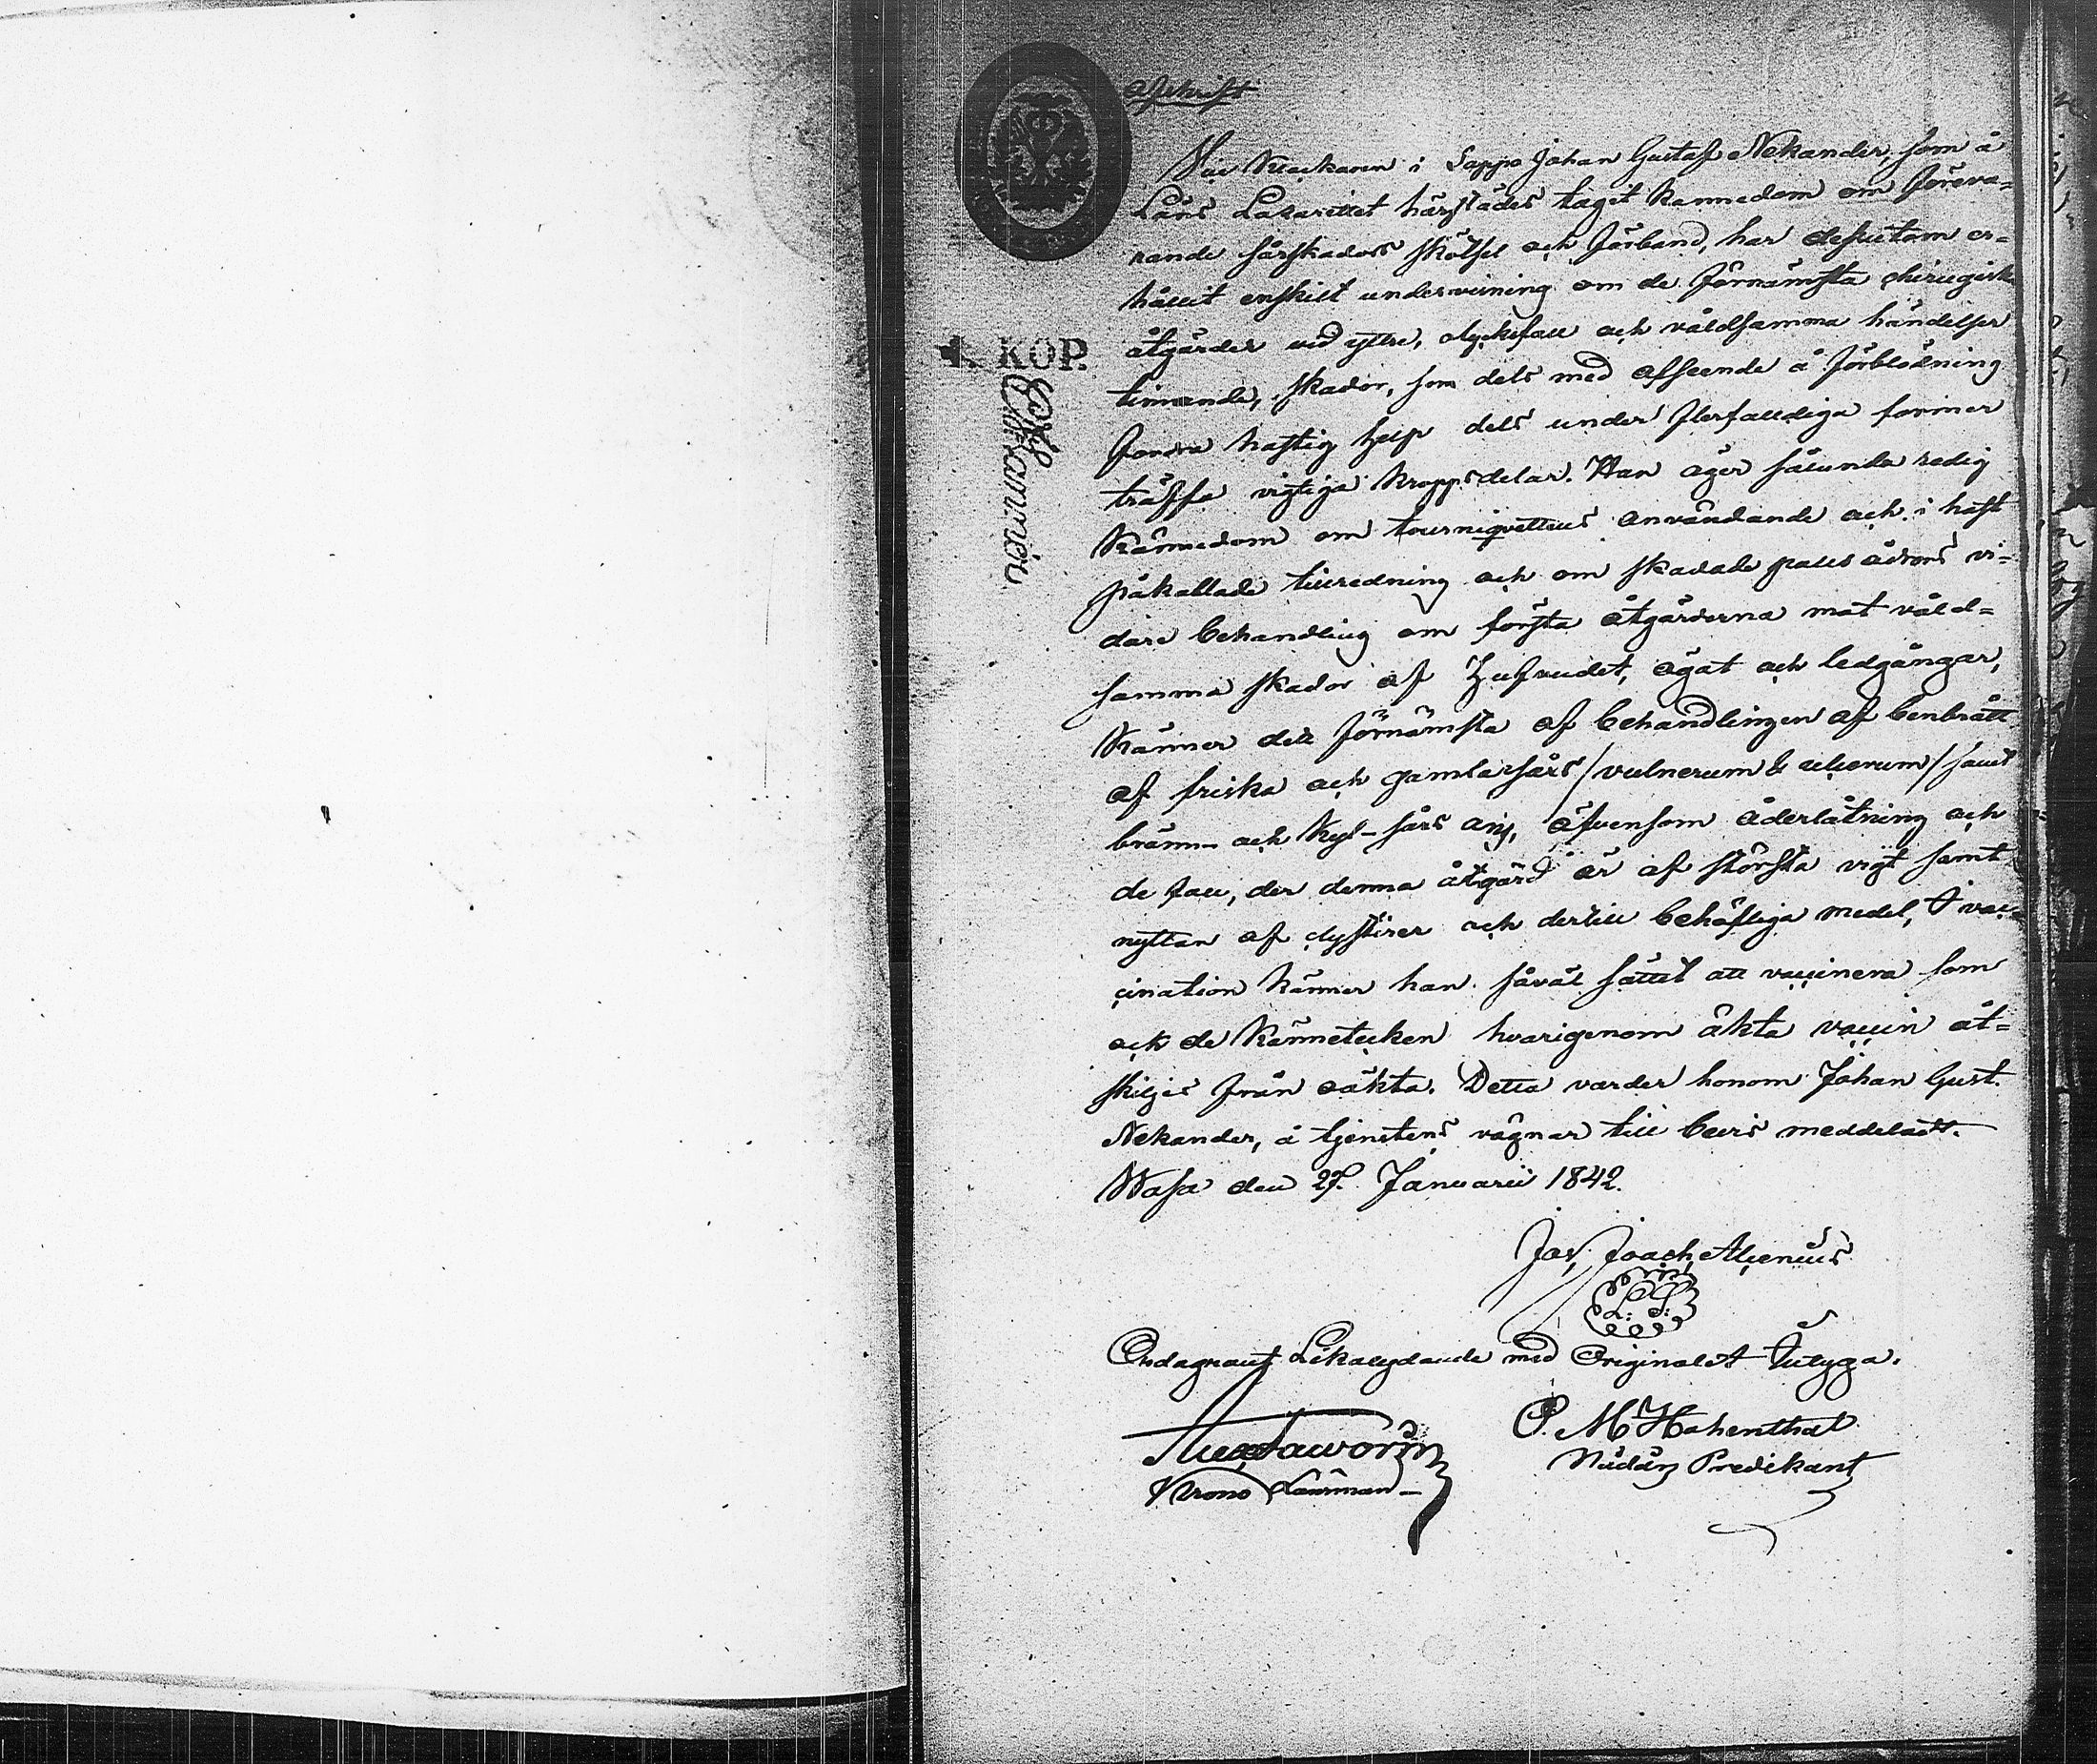 Afskrift
Klockaren i Lappo Johan Gustaf Nekander, som å
Läns Lazarettet härstädes taget kännedom om föreva-
rande sårskadors skötsel och förband, har dessutom er-
hållit enskilt undervisning om de förnämsta chirurgiska
åtgärder vid yttre, olycksfall och våldsamma händelser
timande, skador, som dels med afseende å förblödning
fordra hastig help dels under flerfalldiga former
träffa vigtiga kroppsdelar. Han äger sålunda redig
kännedom om tourniqvettens användande och i hast
påkallade tillredning och om skadade puls ådrors vi-
dare behandling om första åtgärderna mot våld-
samma skador af hufvudet, ögat och ledgångar,
känner det förnämsta af behandlingen af benbrått
af friska och gamla sårs /vulnerum & ulcerum/ samt
bränn- och kyl-sårs äfvensom åderlåtning och
de fall, der denna åtgärd är af största vigt samt
nyttan af clystirer och dertill behöfliga medel, I vac-
cination känner han såväl sättet att vaccinera som
ock de kännetecken hvarigenom äkta vaccin åt-
skiljes från oäkta. Detta varder honom Johan Gust.
Nekander, å tjenstens vägnar till bevis meddeladt.
Wasa den 27. Januarii 1842.
Joach. Alcenius
L: S:
Ordagrant Likalydande med Originalet Intyga.
P. M Hohenthal
Krono Länsman Nådårs Predikant
4. KOP.